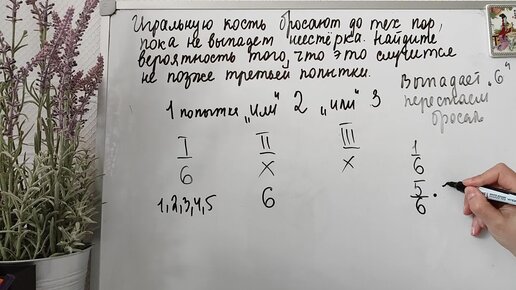 Игральную кость бросают до тех пор,
пока не выпадет шестёрка. Найдите
вероятность того, что это случится
не позже третьей попытки.
Выпадает „6“
перестаем
бросать
1 попытка „или“ 2 „или“ 3
I II III
6 x x 1/6
1,2,3,4,5 6 5/6 ·